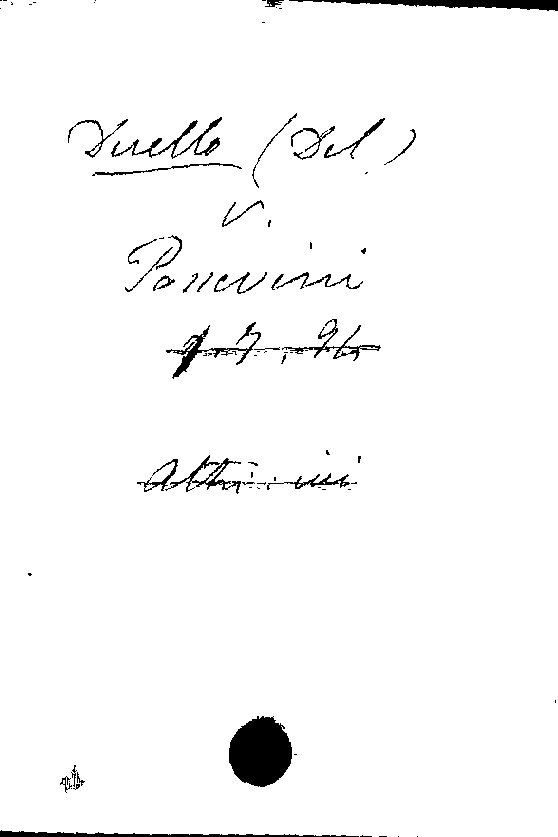 Duello (Del)
v.
Possevini
1.7.96
Altri: ivi